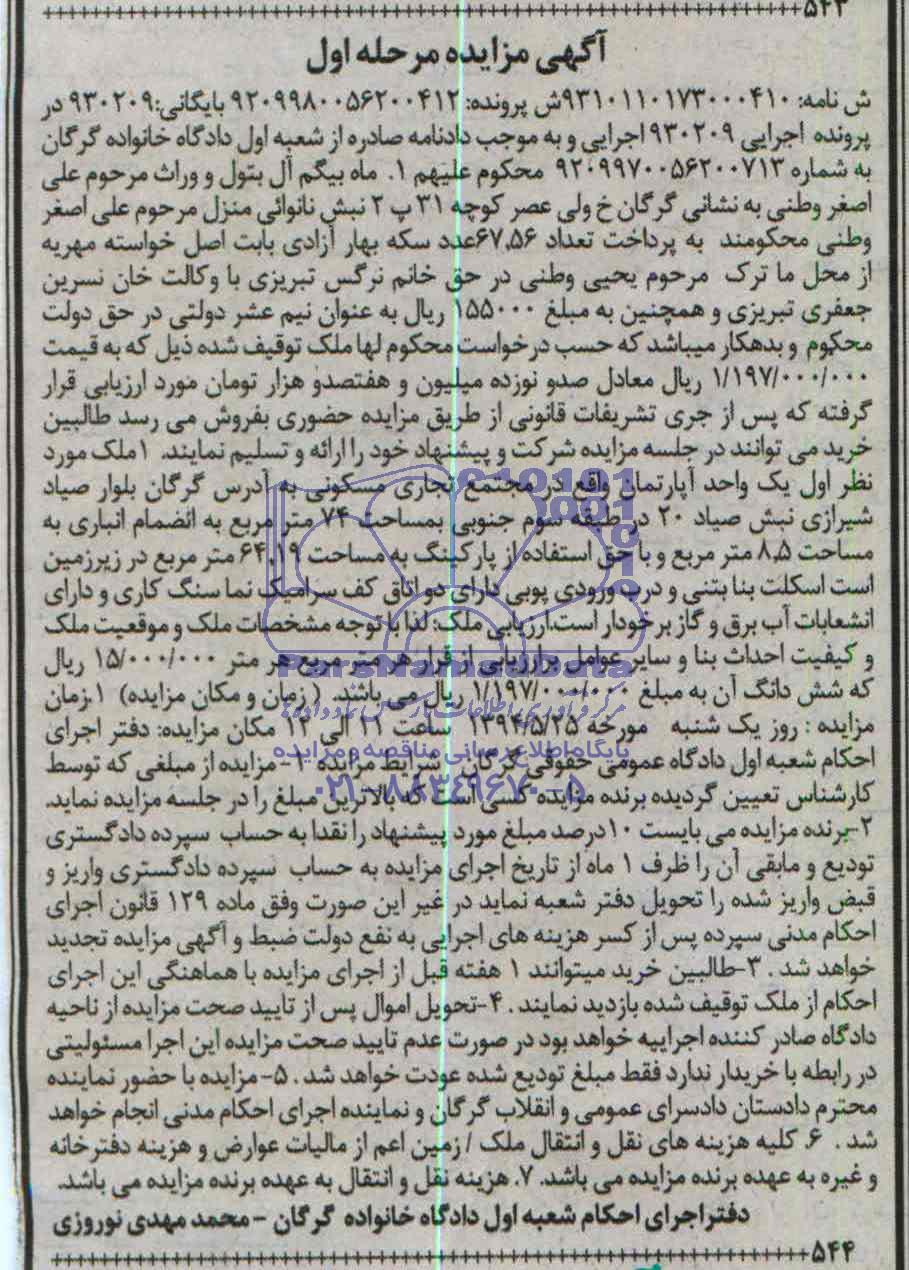 ۵۴۳
آگهی مزایده مرحله اول
ش نامه: ۹۳۱۰۱۱۰۱۷۳۰۰۰۴۱۰ش پرونده: ۹۲۰۹۹۸۰۰۵۶۲۰۰۴۱۲ بایگانی:۹۳۰۲۰۹ در
پرونده اجرایی ۹۳۰۲۰۹ اجرایی و به موجب دادنامه صادره از شعبه اول دادگاه خانواده گرگان
به شماره ۹۲۰۹۹۷۰۰۵۶۲۰۰۷۱۳ محکوم علیهم ۱. ماه بیگم آل بتول و وراث مرحوم علی
اصغر وطنی به نشانی گرگان خ ولی عصر کوچه ۳۱ پ ۲ نبش نانوائی منزل مرحوم علی اصغر
وطنی محکومند به پرداخت تعداد ۶۷,۵۶عدد سکه بهار آزادی بابت اصل خواسته مهریه
از محل ما ترک مرحوم یحیی وطنی در حق خانم نرگس تبریزی با وکالت خان نسرین
جعفری تبریزی و همچنین به مبلغ ۱۵۵۰۰۰ ریال به عنوان نیم عشر دولتی در حق دولت
محکوم و بدهکار میباشد که حسب درخواست محکوم لها ملک توقیف شده ذیل که به قیمت
۱/۱۹۷/۰۰۰/۰۰۰ ریال معادل صدو نوزده میلیون و هفتصدو هزار تومان مورد ارزیابی قرار
گرفته که پس از جری تشریفات قانونی از طریق مزایده حضوری بفروش می رسد طالبین
خرید می توانند در جلسه مزایده شرکت و پیشنهاد خود را ارائه و تسلیم نمایند. ۱ملک مورد
نظر اول یک واحد آپارتمان واقع در مجتمع تجاری مسکونی به آدرس گرگان بلوار صیاد
شیرازی نبش صیاد ۲۰ در طبقه سوم جنوبی بمساحت ۷۴ متر مربع به انضمام انباری به
مساحت ۸,۵ متر مربع و با حق استفاده از پارکینگ به مساحت ۶۴,۱۹ متر مربع در زیرزمین
است اسکلت بنا بتنی و درب ورودی پوبی دارای دو اتاق کف سرامیک نما سنگ کاری و دارای
انشعابات آب برق و گاز برخودار است.ارزیابی ملک: لذا با توجه مشخصات ملک و موقعیت ملک
و کیفیت احداث بنا و سایر عوامل برارزیابی از قرار هر متر مربع هر متر ۱۵/۰۰۰/۰۰۰ ریال
که شش دانگ آن به مبلغ ۱/۱۹۷/۰۰۰/۰۰۰ ریال می باشند. ( زمان و مکان مزایده) ۱.زمان
مزایده : روز یک شنبه مورخه ۱۳۹۴/۵/۲۵ ساعت ۱۱ الی ۱۲ مکان مزایده: دفتر اجرای
احکام شعبه اول دادگاه عمومی حقوقی گرگان شرایط مزایده ۱-مزایده از مبلغی که توسط
کارشناس تعیین گردیده برنده مزایده کسی است که بالاترین مبلغ را در جلسه مزایده نماید.
۲-برنده مزایده می بایست ۱۰درصد مبلغ مورد پیشنهاد را نقدا به حساب سپرده دادگستری
تودیع و مابقی آن را ظرف ۱ ماه از تاریخ اجرای مزایده به حساب سپرده دادگستری واریز و
قبض واریز شده را تحویل دفتر شعبه نماید در غیر این صورت وفق ماده ۱۲۹ قانون اجرای
احکام مدنی سپرده پس از کسر هزینه های اجرایی به نفع دولت ضبط و آگهی مزایده تجدید
خواهد شد . ۳-طالبین خرید میتوانند ۱ هفته قبل از اجرای مزایده با هماهنگی این اجرای
احکام از ملک توقیف شده بازدید نمایند . ۴-تحویل اموال پس از تایید صحت مزایده از ناحیه
دادگاه صادر کننده اجراییه خواهد بود در صورت عدم تایید صحت مزایده این اجرا مسئولیتی
در رابطه با خریدار ندارد فقط مبلغ تودیع شده عودت خواهد شد . ۵-مزایده با حضور نماینده
محترم دادستان دادسرای عمومی و انقلاب گرگان و نماینده اجرای احکام مدنی انجام خواهد
شد . ۶. کلیه هزینه های نقل و انتقال ملک / زمین اعم از مالیات عوارض و هزینه دفترخانه
و غیره به عهده برنده مزایده می باشد. ۷. هزینه نقل و انتقال به عهده برنده مزایده می باشد.
دفتراجرای احکام شعبه اول دادگاه خانواده گرگان - محمد مهدی نوروزی
۵۴۴
ParsNamadData
مرکز فرآوری اطلاعات پارس نماد داده ها
پایگاه اطلاع رسانی مناقصه و مزایده
۰۲۱-۸۸۳۴۹۶۷۰-۵